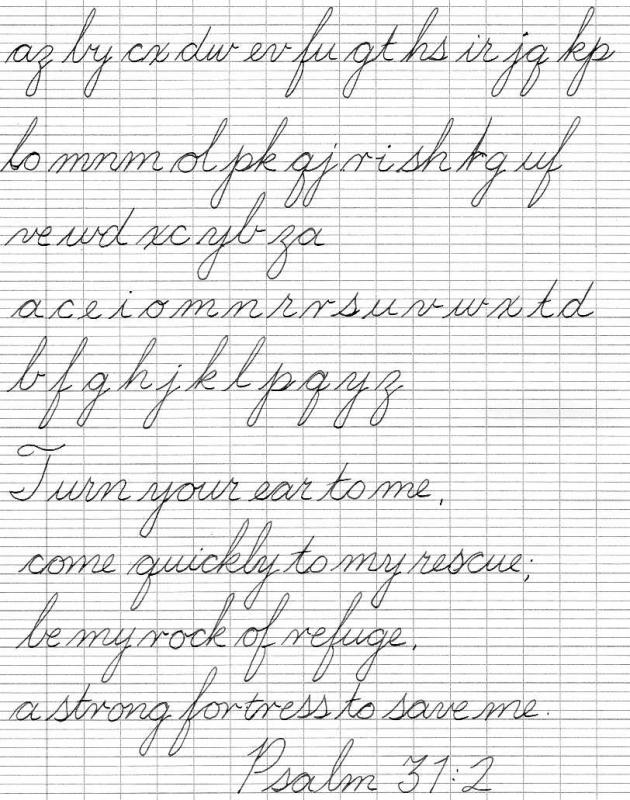 az by cx dw ev fu gt hs ir jq kp
lo mnm ol pk qj ri sh tg uf
ve wd xc yb za
a c e i o m n r r s u v w x t d
b f g h j k l p q y z
Turn your ear to me,
come quickly to my rescue;
be my rock of refuge,
a strong fortress to save me.
Psalm 31:2